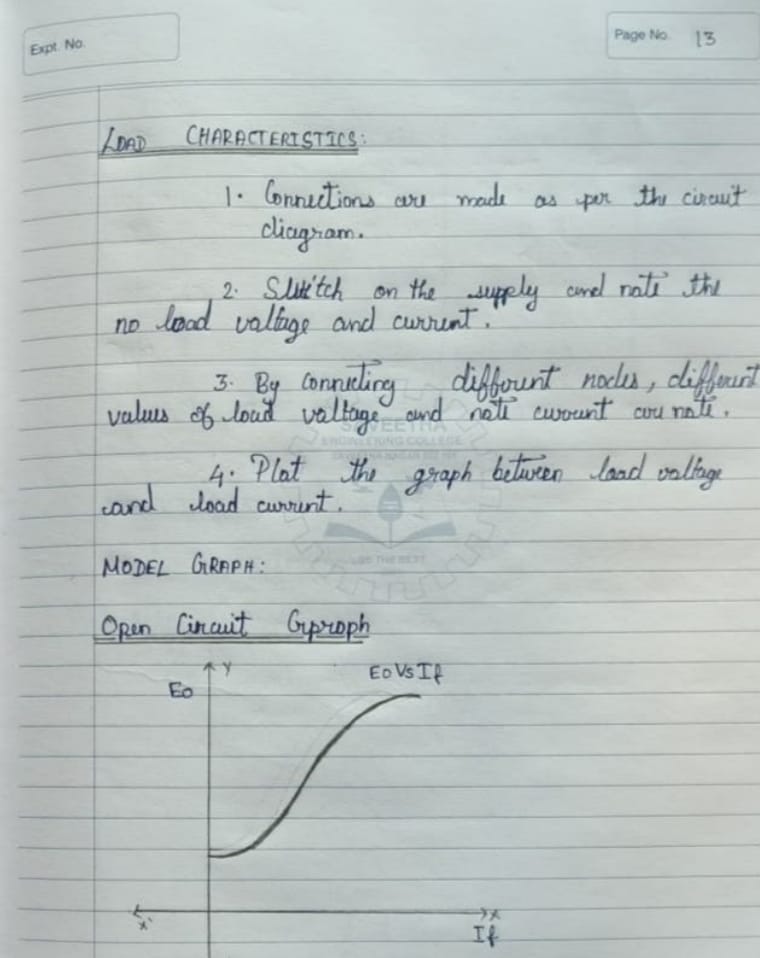 Expt. No.
Page No. 13
LOAD CHARACTERISTICS:
1. Connections are made as per the circuit
diagram.
2. Switch on the supply and note the
no load voltage and current.
3. By connecting different nodes, different
values of load voltage and note current are note.
SAVEETHA
ENGINEERING COLLEGE
4. Plot the graph between load voltage
and load current.
MODEL GRAPH:
Open Circuit Gproph
Y
Eo
Eo Vs If
X'
X
If